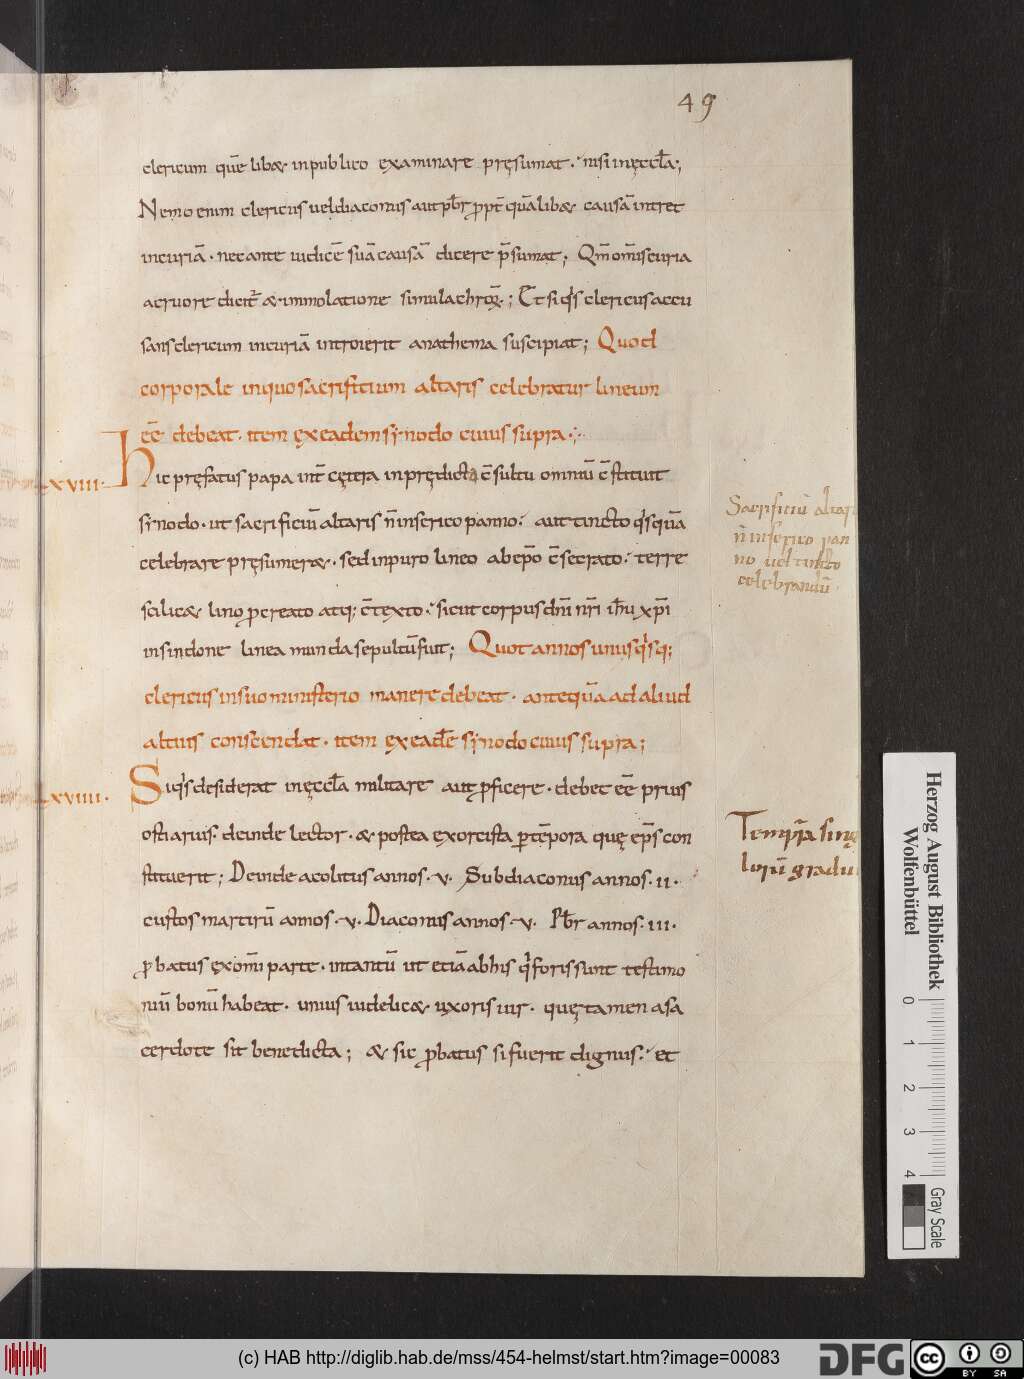 49
clericum quē libæ inpublico examinare pręsumat. nisi inęccła;
Nemo enim clericus uel diaconus aut pbr ꝓpt quālibæ causā intret
incuriā. nec ante iudicē suā causā dicere p̄sumat; Qm̄ om̄is curia
a cruore dicit̄ & immolatione simulachroꝝ; Et siqͥs clericus accu
sans clericum incuriā introierit anathema suscipiat; Quod
corporale inquo sacrificium altaris celebratur lineum
eē debeat. item ex eadem synodo cuius supra.
LXVIII. Hic pręfatus papa int̄ cętera inprędicta c̄sultu omniū c̄stituit
synodo. ut sacrificiū altaris n̄ inserico panno. aut tincto qͥsquā
celebrare pręsumeræ. sed inpuro lineo ab ep̄o c̄secrato. terre
scilicæ lino ꝓcreato atq; c̄texto. sicut corpus dn̄i nr̄i ih̄u xp̄i
insindone linea munda sepultū fuit; Quot annos unusqͥsq;
clericus insuo ministerio manere debeat. antequā ad aliud
altius conscendat. item ex eadē synodo cuius supra;
LXVIIII. Siqͥs desiderat inęccła militare aut ꝓficere. debet eē prius
ostiarius. deinde lector. & postea exorcista ꝑ tēpora quę ep̄s con
stituerit; Deinde acolitus annos. v. Subdiaconus annos. ii.
custos martirū annos. v. Diaconus annos. v. Pbr annos. iii.
ꝓbatus ex om̄i parte. intantū ut etiā abhis qͥ foris sunt testimo
niū bonū habeat. unius uidelicæ uxoris uir. quę tamen a sa
cerdote sit benedicta; & sic ꝓbatus si fuerit dignus. et
Sacrificiū altar
n̄ inserico pan
no uel tincto
celebrandū
Tempͬa singu
lorū gradu
Herzog August Bibliothek
Wolfenbüttel
0 1 2 3 4
Gray Scale
(c) HAB http://diglib.hab.de/mss/454-helmst/start.htm?image=00083
DFG
cc BY SA